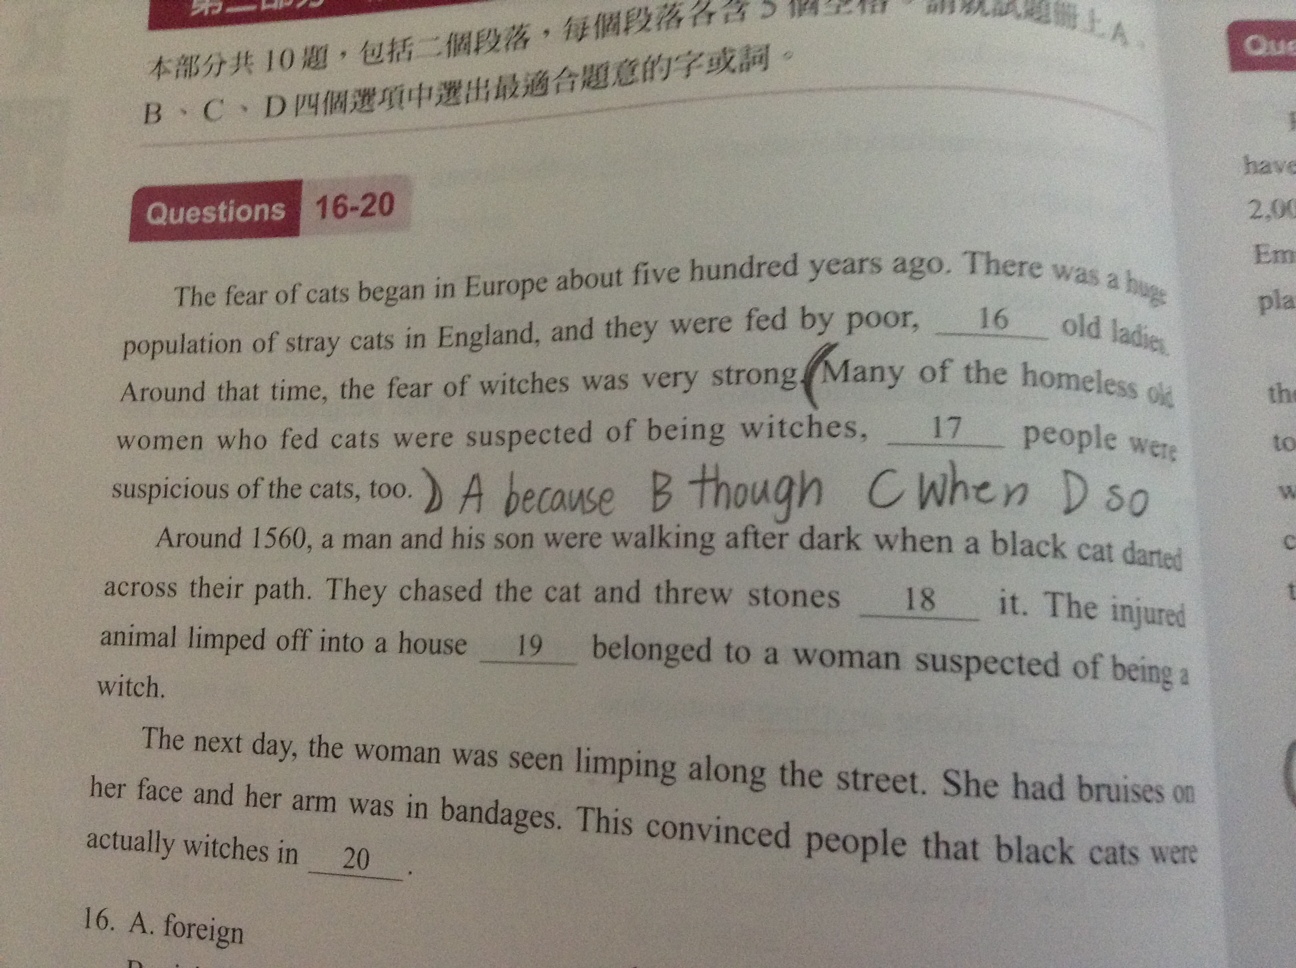 第二部分
本部分共 10 題，包括二個段落，每個段落各含 5 個空格。請就試題冊上 A、
B、C、D 四個選項中選出最適合題意的字或詞。
Questions 16-20
The fear of cats began in Europe about five hundred years ago. There was a huge
population of stray cats in England, and they were fed by poor, 16 old ladies.
Around that time, the fear of witches was very strong. (Many of the homeless old
women who fed cats were suspected of being witches, 17 people were
suspicious of the cats, too. ) A because B though C When D so
Around 1560, a man and his son were walking after dark when a black cat darted
across their path. They chased the cat and threw stones 18 it. The injured
animal limped off into a house 19 belonged to a woman suspected of being a
witch.
The next day, the woman was seen limping along the street. She had bruises on
her face and her arm was in bandages. This convinced people that black cats were
actually witches in 20 .
16. A. foreign
Que
have
2,00
Em
pla
the
to
w
c
t